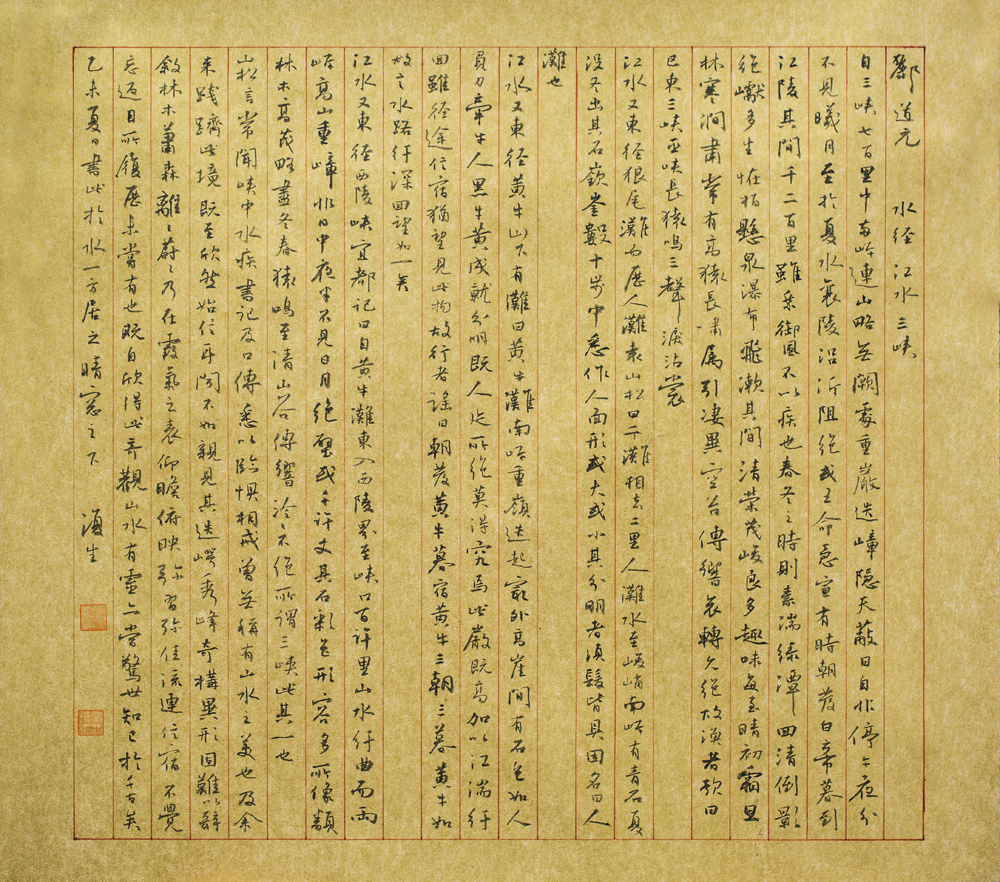 酈道元 水经 江水 三峡
自三峡七百里中两岸連山略无闕處重巖迭嶂隐天蔽日自非停午夜分
不见曦月至於夏水襄陵沿泝阻绝或王命急宣有時朝發白帝暮到
江陵其间千二百里雖乘御風不以疾也春冬之時則素湍绿潭回清倒影
绝巘多生怪柏懸泉瀑布飛漱其間清荣茂峻良多趣味每至晴初霜旦
林寒澗肃常有高猿长啸属引凄異空谷傳響哀轉久绝故渔者歌曰
巴東三峡巫峡长猿鳴三聲淚沾裳
江水又東径狼尾灘而歷人灘袁山松曰二灘相去二里人灘水至峻峭南岸有青石夏
没冬出其石嶔崟數十步中悉作人面形或大或小其分明者须髮皆具因名曰人
灘也
江水又東径黄牛山下有灘曰黄牛灘南岸重嶺迭起最外高崖間有石色如人
負刀牽牛人黑牛黄成就分明既人迹所绝莫得究焉此巖既高加以江湍纡
回雖径途信宿猶望见此物故行者謠曰朝發黄牛暮宿黄牛三朝三暮黄牛如
故言水路纡深回望如一矣
江水又東径西陵峡宜都记曰自黄牛灘東入西陵界至峡口百许里山水纡曲而兩
岸高山重嶂非日中夜半不见日月绝壁或千许丈其石彩色形容多所像類
林木高茂略盡冬春猿鳴至清山谷傳響泠泠不绝所謂三峡此其一也
山松言常聞峡中水疾書记及口傳悉以臨惧相戒曾无稱有山水之美也及余
来踐躋此境既至欣然始信耳聞不如親见其迭崿秀峰奇構異形固難以辭
敘林木蕭森離離蔚蔚乃在霞氣之表仰瞻俯映弥習弥佳流連信宿不覺
忘返目所履歷未嘗有也既自欣得此奇觀山水有靈亦當驚世知己於千古矣
乙未夏日書此於水一方居之晴窓之下 海生